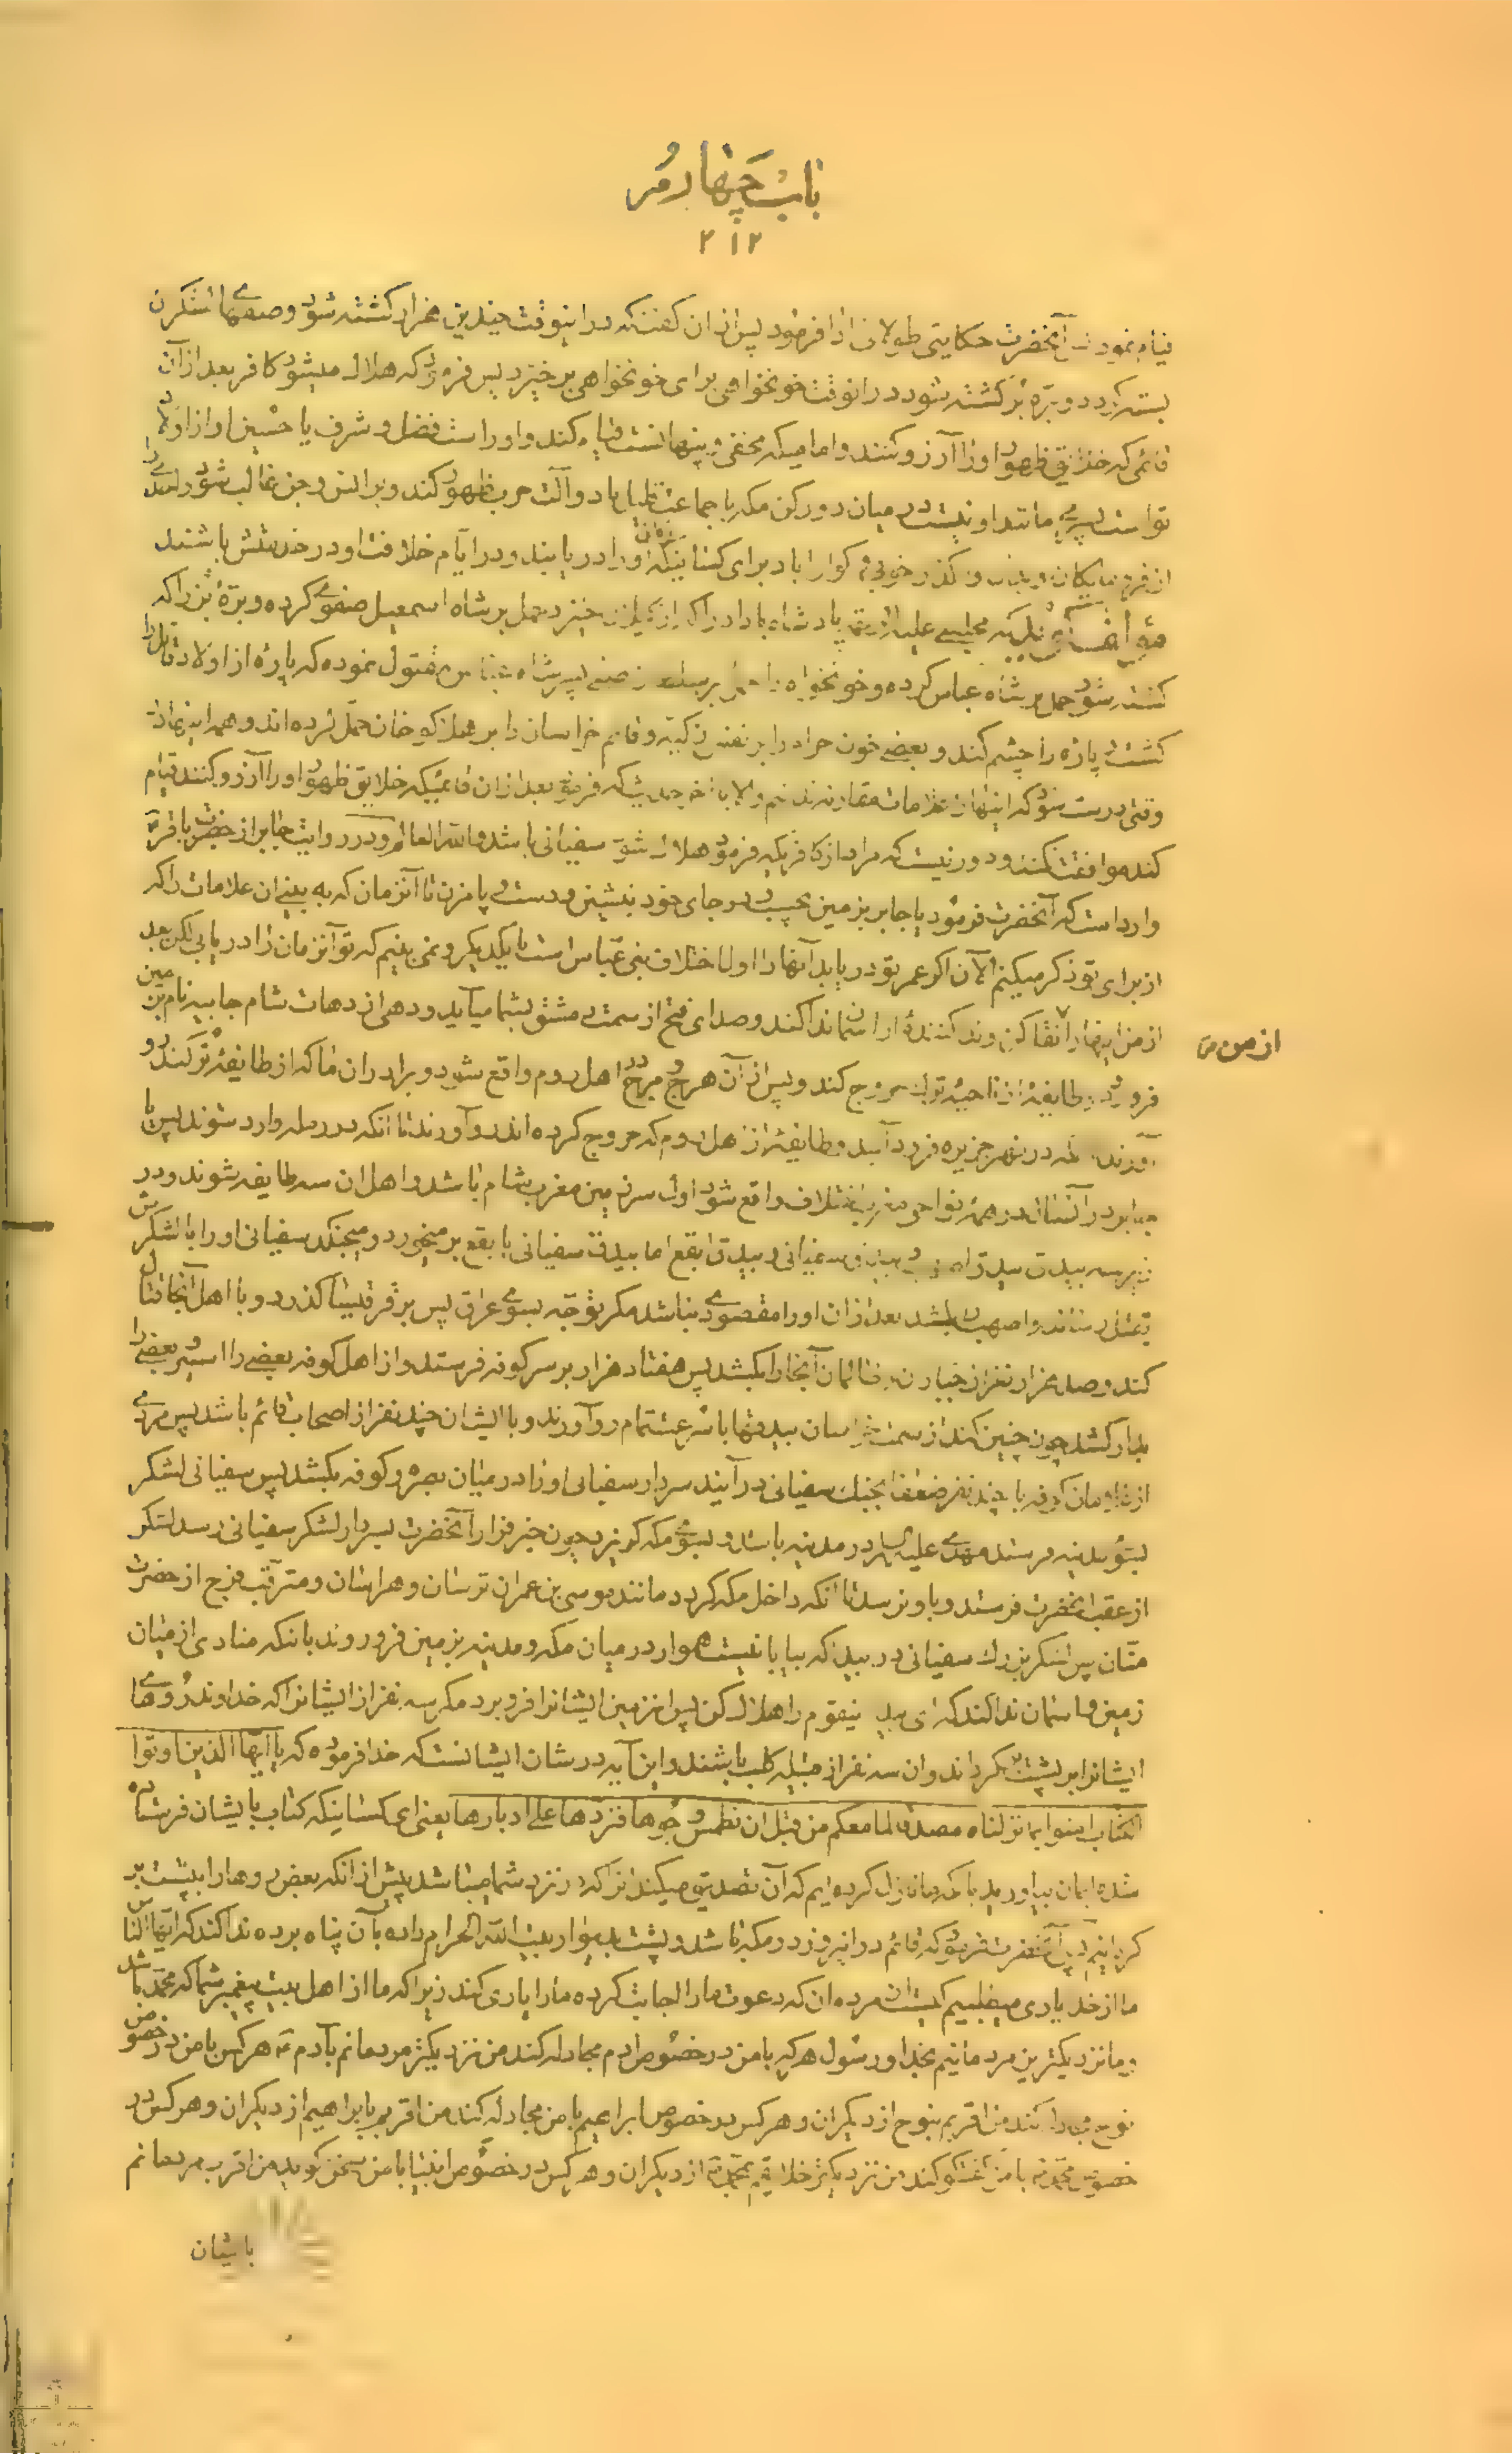 باب چهارم
۲۱۲
قیام نمود آنحضرت حکایتی طولانی را فرمود پس از آن گفت که در اینوقت چندین هزار کشته شود و صفهای لشکر
بسته گردد و برّه نر کشته شود در انوقت خونخواهی برای خونخواهی برخیزد پس فرمود که هلاک میشود کافر بعد از آن
قائمی که خلایق ظهور او را آرزو کنند و امامیکه مخفی و پنهانست قیام کند و اوراست فضل و شرف یا حسین او از اولاد
تو است پسری مانند او نیست در میان دو رکن مکه با جماعت ظاهر شود و آلت حرب ظهور کند و بر انس و جن غالب شود
از فرومایکان کوارا باد برای کسانیکه زمان او را در یابند و در ایام خلافت او در خدمتش باشند
مؤلف گوید که مجلسی علیه الرحمة پادشاهی را که از گیلان خیزد حمل بر شاه اسمعیل صفوی کرده و برّه نر را که
کشته شود حمل بر شاه عباس کرده و خونخواه را حمل بر صفی پسر شاه عباس مقتول نموده که پاره از اولاد قاتل را
کشت و پاره را چشم کند و بعضی خون حرام را بر نفس زکیه و قائم خراسان را بر هلاکو خان حمل کرده اند و همه اینها
وقتی درست شود که اینها از علامات مقارنه نباشد و الا با حدیث که فرمود بعد از آن قائمیکه خلایق ظهور او را آرزو کنند قیام
کند موافقت نکند و دور نیست که مراد از کافریکه فرمود هلاک شود سفیانی باشد والله العالم و در روایت جابر از حضرت باقر ع
وارد است که آنحضرت فرمود یا جابر بزمین بچسب و در جای خود بنشین و دست و پا مزن تا آنزمان که به بینی ان علامات را که
از برای تو ذکر میکنم الآن اگر عمر تو در یابد آنها را اول اختلاف بنی عباس است با یکدیگر و نمی بینم که تو آنزمان را در یابی لکن بعد
از من اینها را نقل کن و ندا کننده از اسمان ندا کند و صدای فتح از سمت دمشق بشما میاید و دهی از دهات شام جابیه نام بزمین
از من ص
فرو رود و طایفه از ناحیه ترک خروج کند و پس از آن هرج و مرج در اهل روم واقع شود و برادران ما که از طایفه ترکند رو
آورند که در نهر جزیره فرود آیند و طایفه از اهل روم که خروج کرده اند رو آورند تا انکه در رمله وارد شوند پس یا
جابر در آنسال در همه نواحی مغرب اختلاف واقع شود اول سرزمین مغرب شام باشد و اهل ان سه طایفه شوند و در
زیر سه بیدق بیدق اصهب و بیدق سفیانی و بیدق ابقع اما بیدق سفیانی با بقع بر میخورد و میجنگد سفیانی او را با لشکرش
بقتل رساند و اصهب را بکشد بعد از آن او را مقصودی نباشد مگر توجه بسوی عراق پس بر قرقیسا گذرد و با اهل آنجا قتال
کند و صد هزار نفر از جباران و ظالمان آنجا را بکشد پس هفتاد هزار بر سر کوفه فرستد و از اهل کوفه بعضی را اسیر و بعضی را
بدار کشد چون چنین کند از سمت خراسان بیدقها با شرعت تمام رو آورند و با ایشان چند نفر از اصحاب قائم باشد پس مردی
از غلامان کوفه با چند نفر ضعفا بجنك سفیانی در آیند سردار سفیانی او را در میان بصره و کوفه بکشد پس سفیانی لشکر
بسوی مدینه فرستد مهدی علیه السلام در مدینه باشد و بسوی مکه گریزد چون خبر فرار آنحضرت بسردار لشکر سفیانی رسد لشکر
از عقب انحضرت فرستد و با و نرسد تا انکه داخل مکه گردد مانند موسی بن عمران ترسان و هراسان و مترقب فرج از حضرت
منّان پس لشکر بزرك سفیانی در بیدا که بیابانیست هموار در میان مکه و مدینه بزمین فرو روند بانکه منادی از میان
زمین و اسمان ندا کند که ای بیدا اینقوم را هلاك کن پس از زمین ایشانرا فرو برد مگر سه نفر از ایشانرا که خداوند روهای
ایشانرا بر پشت گرداند و ان سه نفر از قبیله کلب باشند و این آیه در شان ایشانست که خدا فرموده که یا ایها الذین اوتوا
الکتاب امنوا بما نزلناه مصدقا لما معکم من قبل ان نطمس وجوها فنردها علی ادبارها یعنی ای کسانیکه کتاب بایشان فرستاده
شده ایمان بیاورید با نچه ما نازل کرده ایم که آن تصدیق میکند انرا که در نزد شما میباشد پیش از انکه بعض روها را بپشت بر
گردانیم پس آنحضرت فرمود که قائم در انروز در مکه باشد و پشت بدیوار بیت الله الحرام داده بآن پناه برده ندا کند که ایها الناس
ما از خدا یاری میطلبیم کیست از مردمان که دعوت ما را اجابت کرده ما را یاری کند زیرا که ما از اهل بیت پیغمبر شما که محمّد باشد
و ما نزدیکترین مردمانیم بخدا و رسول هر که با من در خصوص ادم مجادله کند من نزدیکتر مردمانم بآدم ع هر کس با من در خصوص
نوح مجادله کند من اقربم بنوح از دیگران و هر کس در خصوص ابراهیم با من مجادله کند من اقربم بابراهیم از دیگران و هر کس در
خصوص محمد ص با من گفتگو کند من نزدیکتر خلایقم بمحمد ص از دیگران و هر کس در خصوص انبیا با من سخن گوید من اقرب مردمانم
بایشان